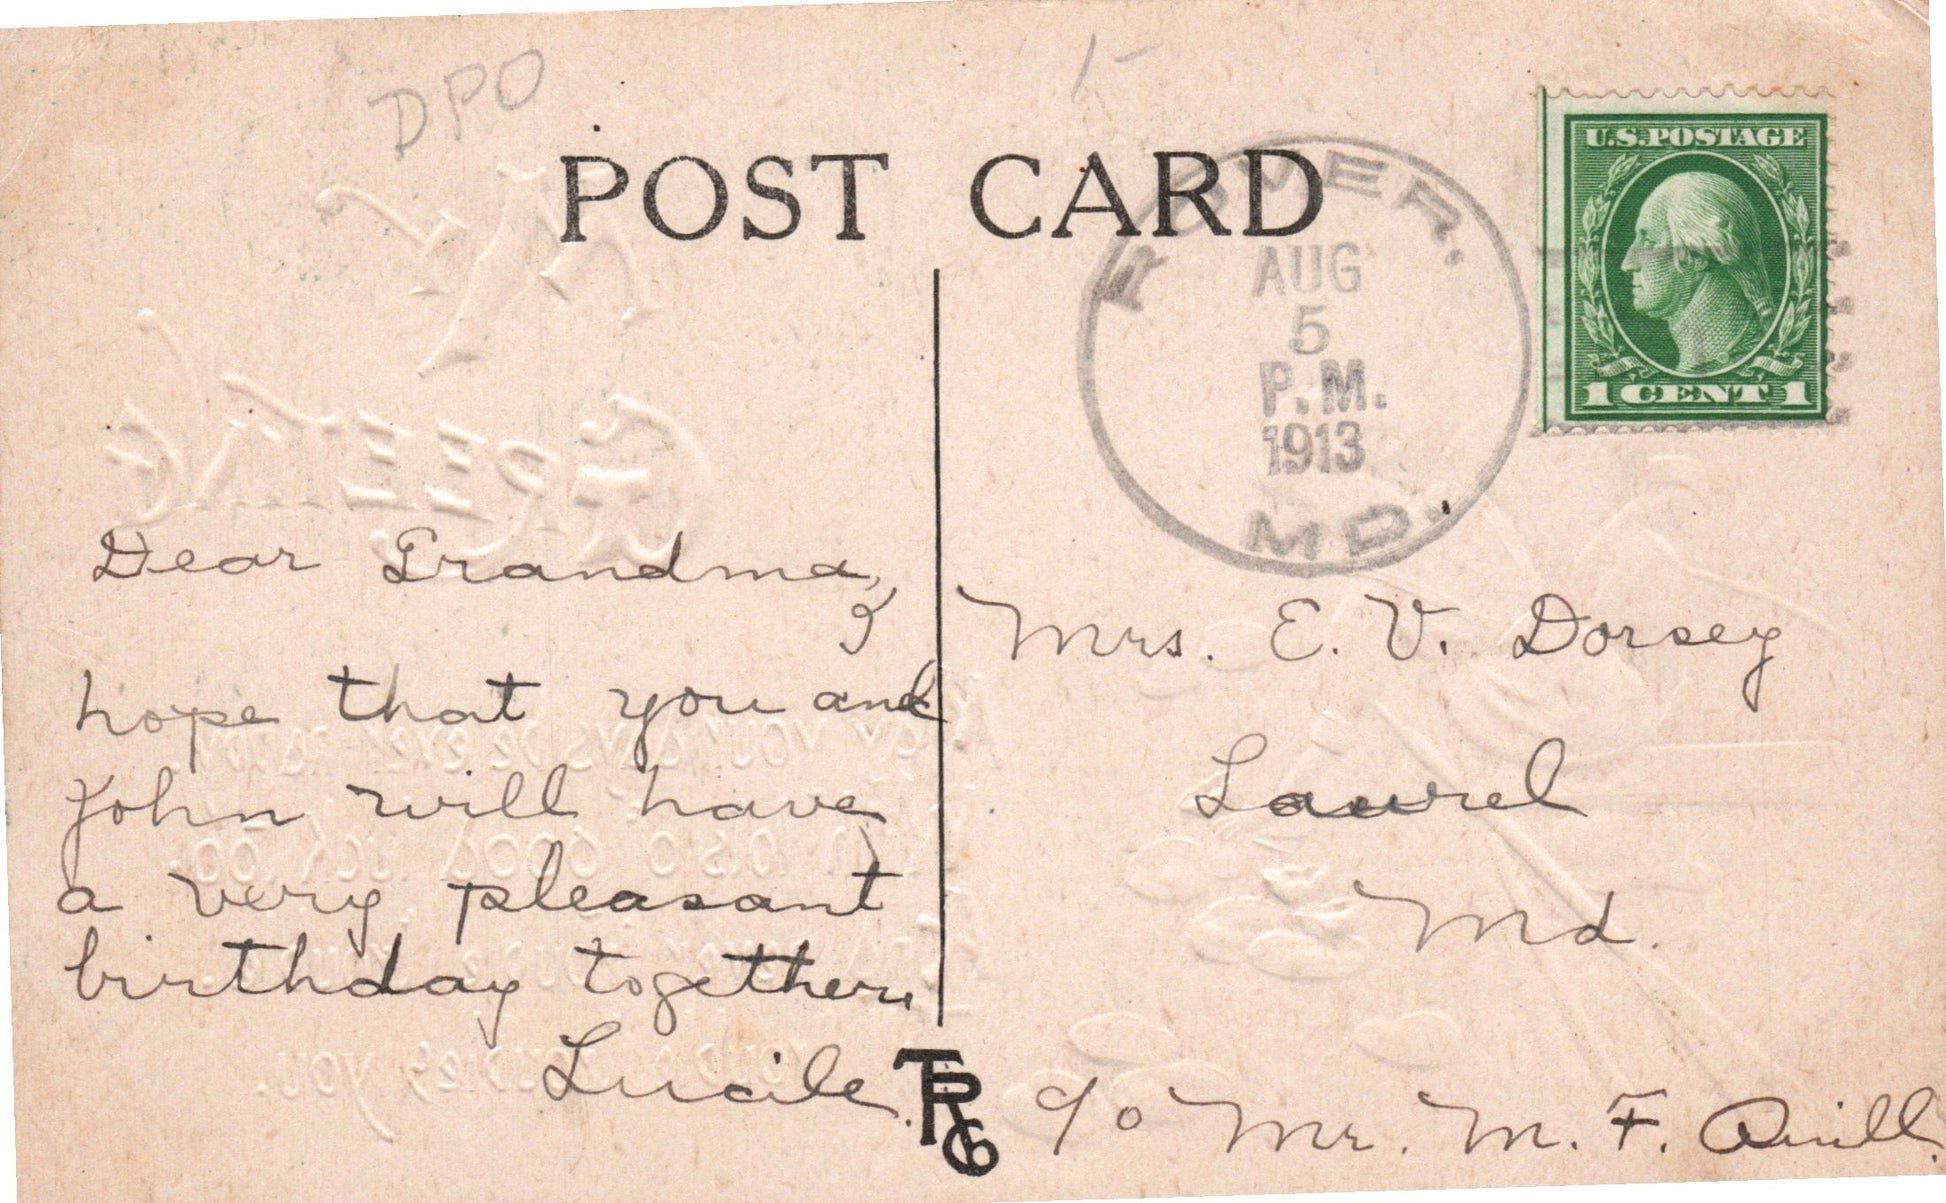 DPO
POST CARD
ROVER.
AUG
5
P.M.
1913
MD.
U.S. POSTAGE
1 CENT 1
Dear Grandma,
I
hope that you and
John will have
a very pleasant
birthday together,
Lucile.
Mrs. E. V. Dorsey
Laurel
Md.
c/o Mr. M. F. Quill.
TRG